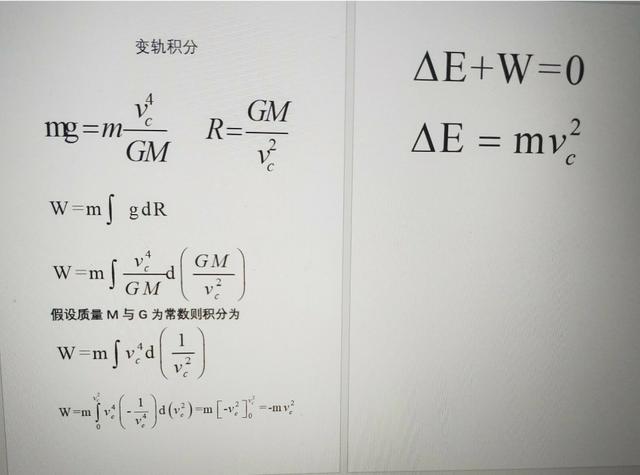 变轨积分
mg=m\frac{v_c^4}{GM} R=\frac{GM}{v_c^2}
W=m∫ gdR
W=m∫\frac{v_c^4}{GM}d\left(\frac{GM}{v_c^2}\right)
假设质量 M 与 G 为常数则积分为
W=m∫v_c^4d\left(\frac{1}{v_c^2}\right)
W=m\int_0^{v_c^2}v_c^4\left(-\frac{1}{v_c^4}\right)d(v_c^2)=m[-v_c^2]_0^{v_c^2}=-mv_c^2
ΔE+W=0
ΔE = mv_c^2